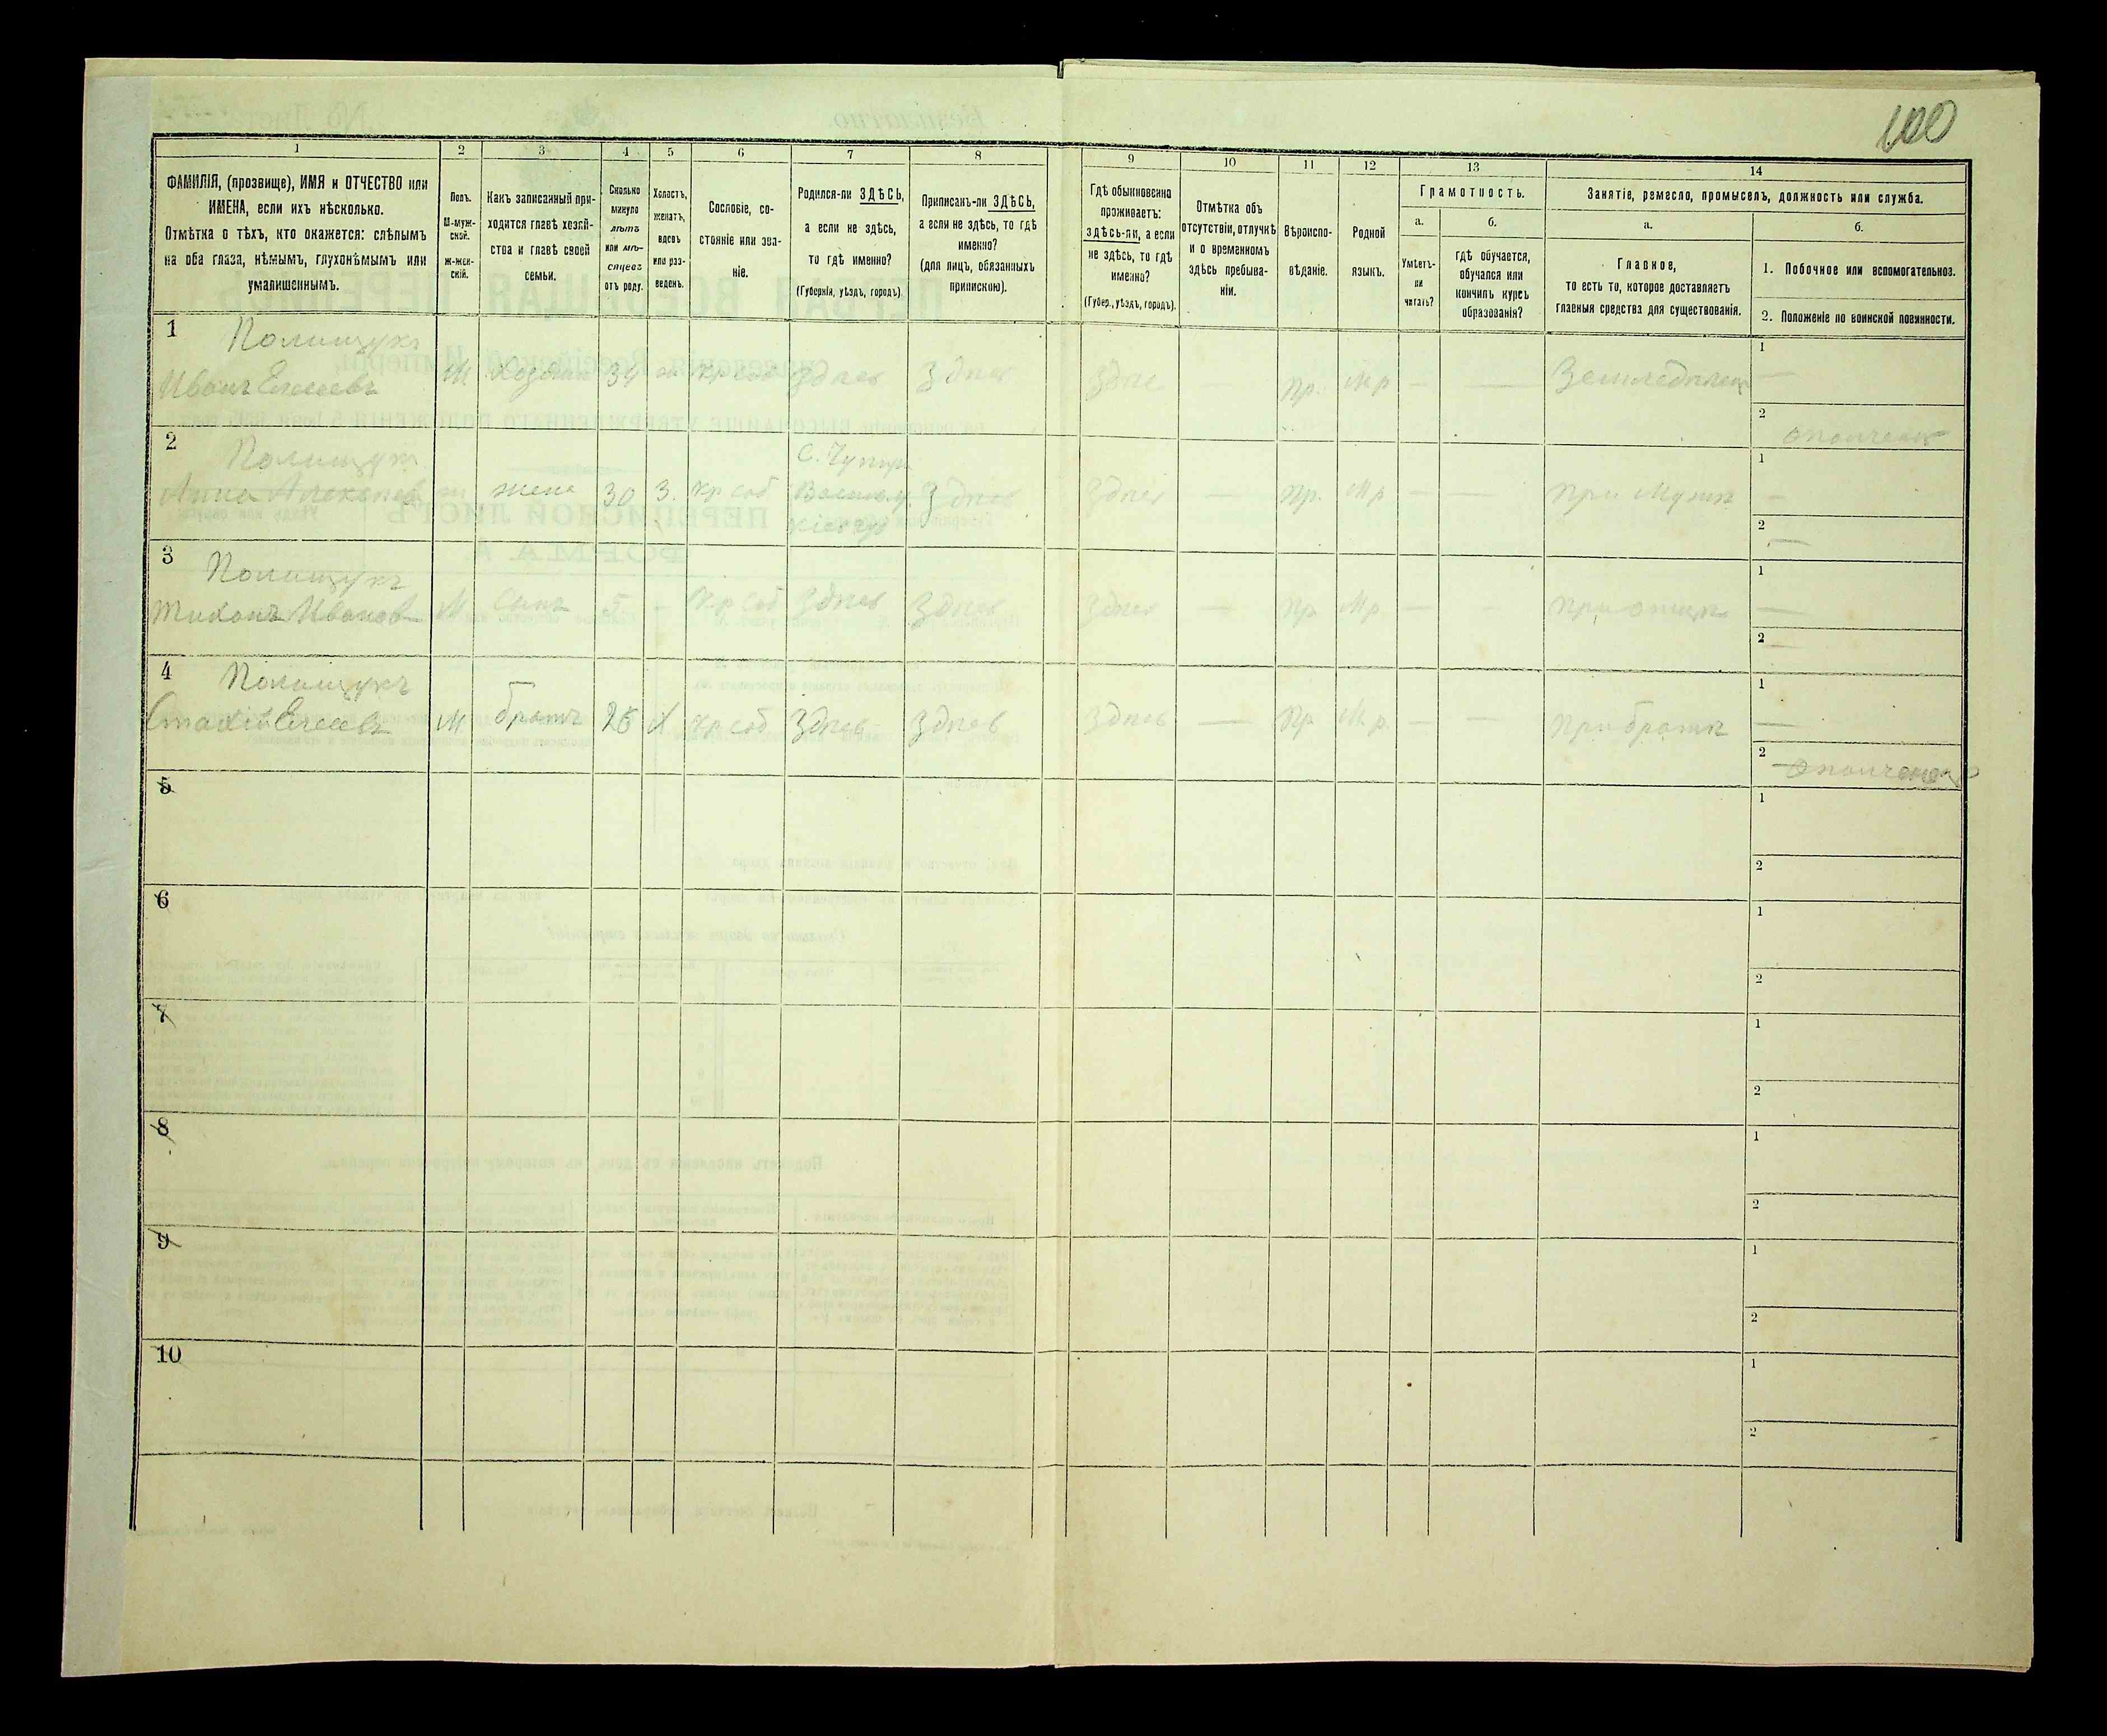 100
1
2
3
4
5
6
7
8
9
10
11
12
13
14
ФАМИЛІЯ, (прозвище), ИМЯ и ОТЧЕСТВО или
ИМЕНА, если ихъ нѣсколько.
Отмѣтка о тѣхъ, кто окажется: слѣпымъ
на оба глаза, нѣмымъ, глухонѣмымъ или
умалишеннымъ.
Полъ.
М-муж-
ской.
ж-жен-
скій.
Какъ записанный при-
ходится главѣ хозяй-
ства и главѣ своей
семьи.
Сколько
минуло
лѣтъ
или мѣ-
сяцевъ
отъ роду.
Холостъ,
женатъ,
вдовъ
или раз-
веденъ.
Сословіе, со-
стояніе или зва-
ніе.
Родился-ли ЗДѢСЬ,
а если не здѣсь,
то гдѣ именно?
(Губернія, уѣздъ, городъ)
Приписанъ-ли ЗДѢСЬ,
а если не здѣсь, то гдѣ
именно?
(для лицъ, обязанныхъ
припискою).
Гдѣ обыкновенно
проживаетъ:
здѣсь-ли, а если
не здѣсь, то гдѣ
именно?
(Губер., уѣздъ, городъ).
Отмѣтка объ
отсутствіи, отлучкѣ
и о временномъ
здѣсь пребыва-
ніи.
Вѣроиспо-
вѣданіе.
Родной
языкъ.
Грамотность.
а.
б.
Умѣетъ-
ли
читать?
гдѣ обучается,
обучался или
кончилъ курсъ
образованія?
Занятіе, ремесло, промыселъ, должность или служба.
а.
б.
Главное,
то есть то, которое доставляетъ
главныя средства для существованія.
1. Побочное или вспомогательное.
2. Положеніе по воинской повинности.
1
Полищукъ
Иванъ Елисеевъ М Хозяинъ 34 кр соб Здѣсь Здѣсь Здѣсь — пр. Мр — — Земледѣлецъ
1 —
2 ополченецъ
2
Полищукъ
Анна жена 30 З. кр соб
Здѣсь Здѣсь — пр. Мр — — при мужѣ
1 —
2 —
3
Полищукъ
Тихонъ Ивановъ М сынъ 5 - кр соб Здѣсь Здѣсь Здѣсь — пр Мр. — - при отцѣ
1 —
2 —
4
Полищукъ
Елисеевъ М братъ 26 Х кр соб Здѣсь Здѣсь Здѣсь — пр Мр. — — при братѣ
1 —
2 ополченецъ
5
1
2
6
1
2
7
1
2
8
1
2
9
1
2
10
1
2